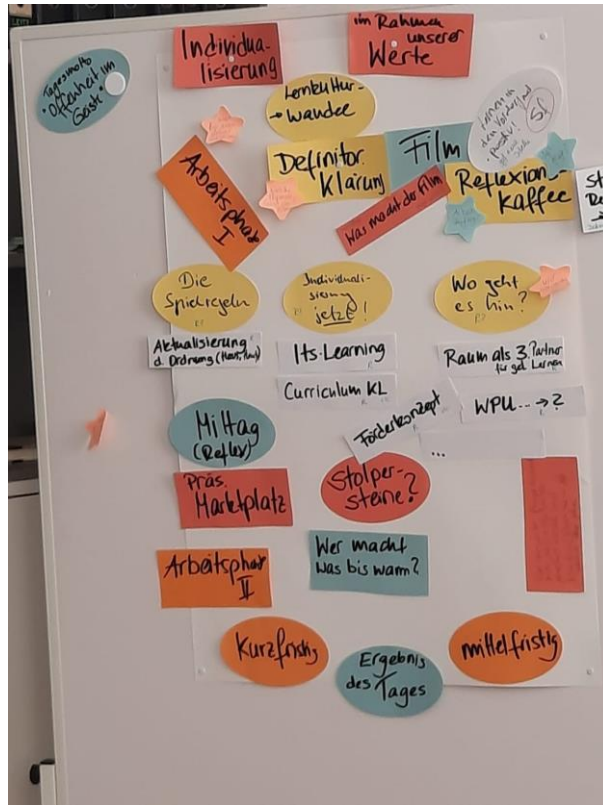 Tagesmotto
"Offenheit im
Geiste"
Individua-
lisierung
im Rahmen
unserer
Werte
Lernkultur-
→ Wandel
Arbeitsphase
I
Definitor.
Klärung
Film
Was macht der Film
Reflexions-
Kaffee
St
Re
Die
Spielregeln
Individuali-
sierung
jetzt!
Wo geht
es hin?
Aktualisierung
d. Ordnung
Its-Learning
Curriculum KL
Raum als 3. Partner
für gel. Lernen
WPU... → ?
Förderkonzept
...
Mittag
(Reflex)
Präs.
Marktplatz
Stolper-
steine?
Arbeitsphase
II
Wer macht
Was bis wann?
Kurzfristig
Ergebnis
des Tages
mittelfristig